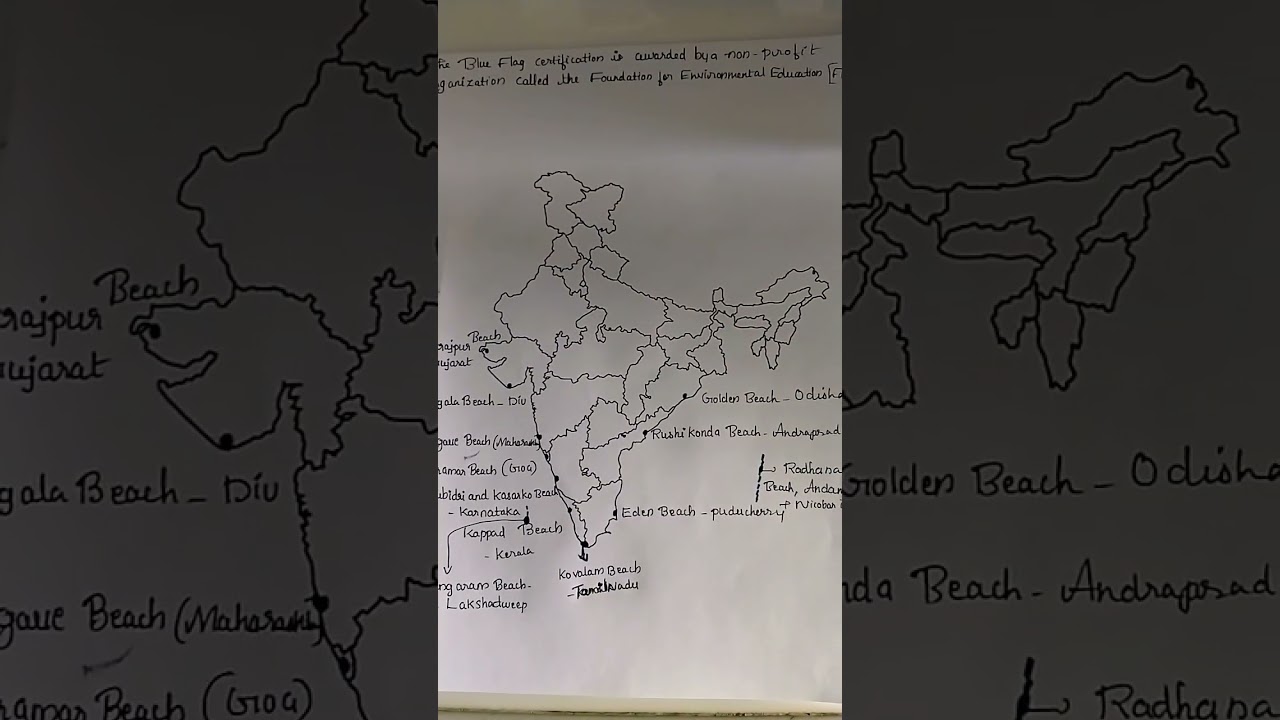 he Blue Flag certification is awarded by a non-profit
ganization called the Foundation for Environmental Education [F
Beach
rajpur
ujarat
gala Beach – Diu
gave Beach (Maharash
ramar Beach (Goa)
ubidri and Kasarko Beach
– Karnataka
Kappad Beach
– Kerala
ngaram Beach–
Lakshadweep
Kovalam Beach
–TamilNadu
Golden Beach – Odisha
Rushi Konda Beach – Andraprad
Radhana
Beach, Andam
Nicobar i
Eden Beach – puducherry
Beach
rajpur
ujarat
gala Beach – Diu
gave Beach (Maharash
ramar Beach (Goa)
Golden Beach – Odisha
nda Beach – Andraprad
Radhana